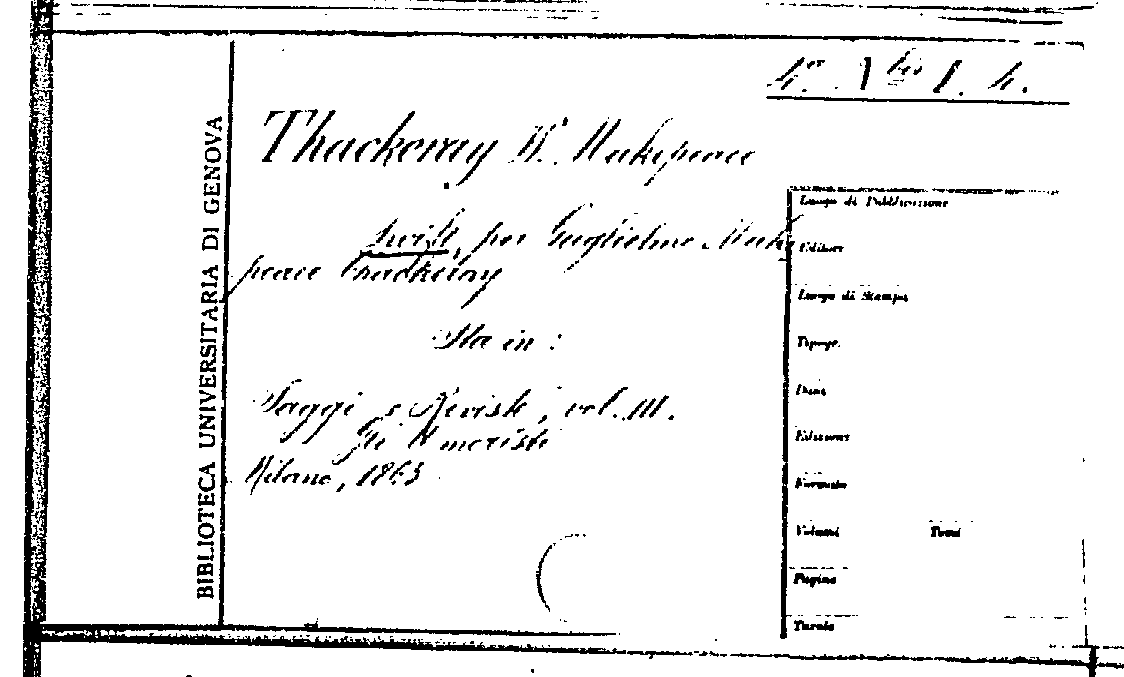 BIBLIOTECA UNIVERSITARIA DI GENOVA
4. 1 bis 1. 4.
Thackeray W. Makepeace
Swift, per Guglielmo Make
peace Thackeray
Sta in :
Saggi e Riviste, vol. III.
Gli Umoristi
Milano, 1863
Luogo di Pubblicazione
Editore
Luogo di Stampa
Tipogr.
Data
Edizione
Formato
Volumi Tomi
Pagine
Tavole